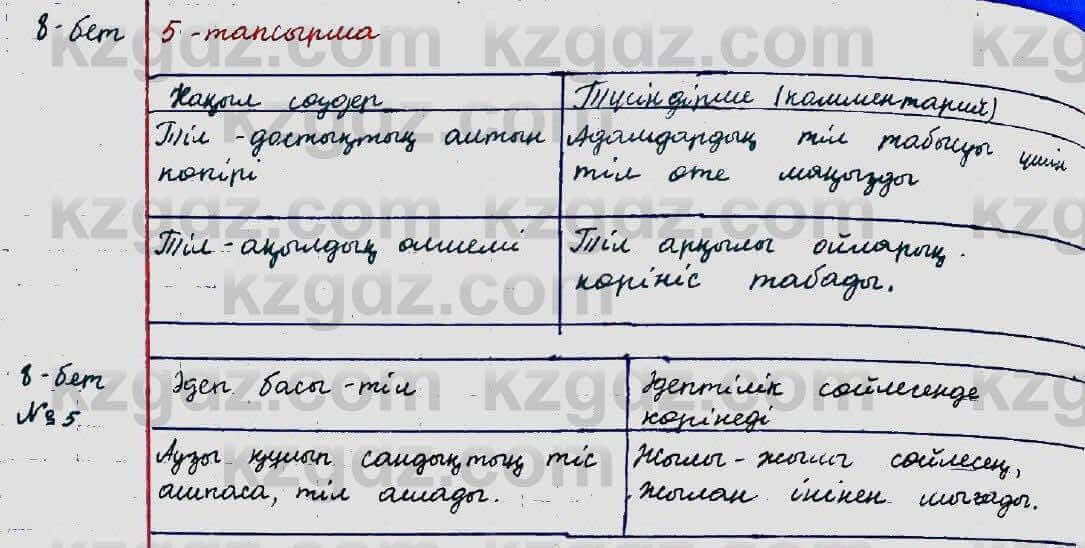 8-бет 5-тапсырма
Нақыл сөздер Түсіндірме (комментарий)
Тіл - достықтың алтын Адамдардың тіл табысуы үшін
көпірі тіл өте маңызды
Тіл - ақылдың өлшемі Тіл арқылы ойларың
көрініс табады.
8-бет Әдеп басы - тіл Әдептілік сөйлегенде
№ 5 көрінеді
Аузы құлып сандықтың тіс Жылы-жылы сөйлесең,
ашпаса, тіл ашады. жылан інінен шығады.
kzgdz.com